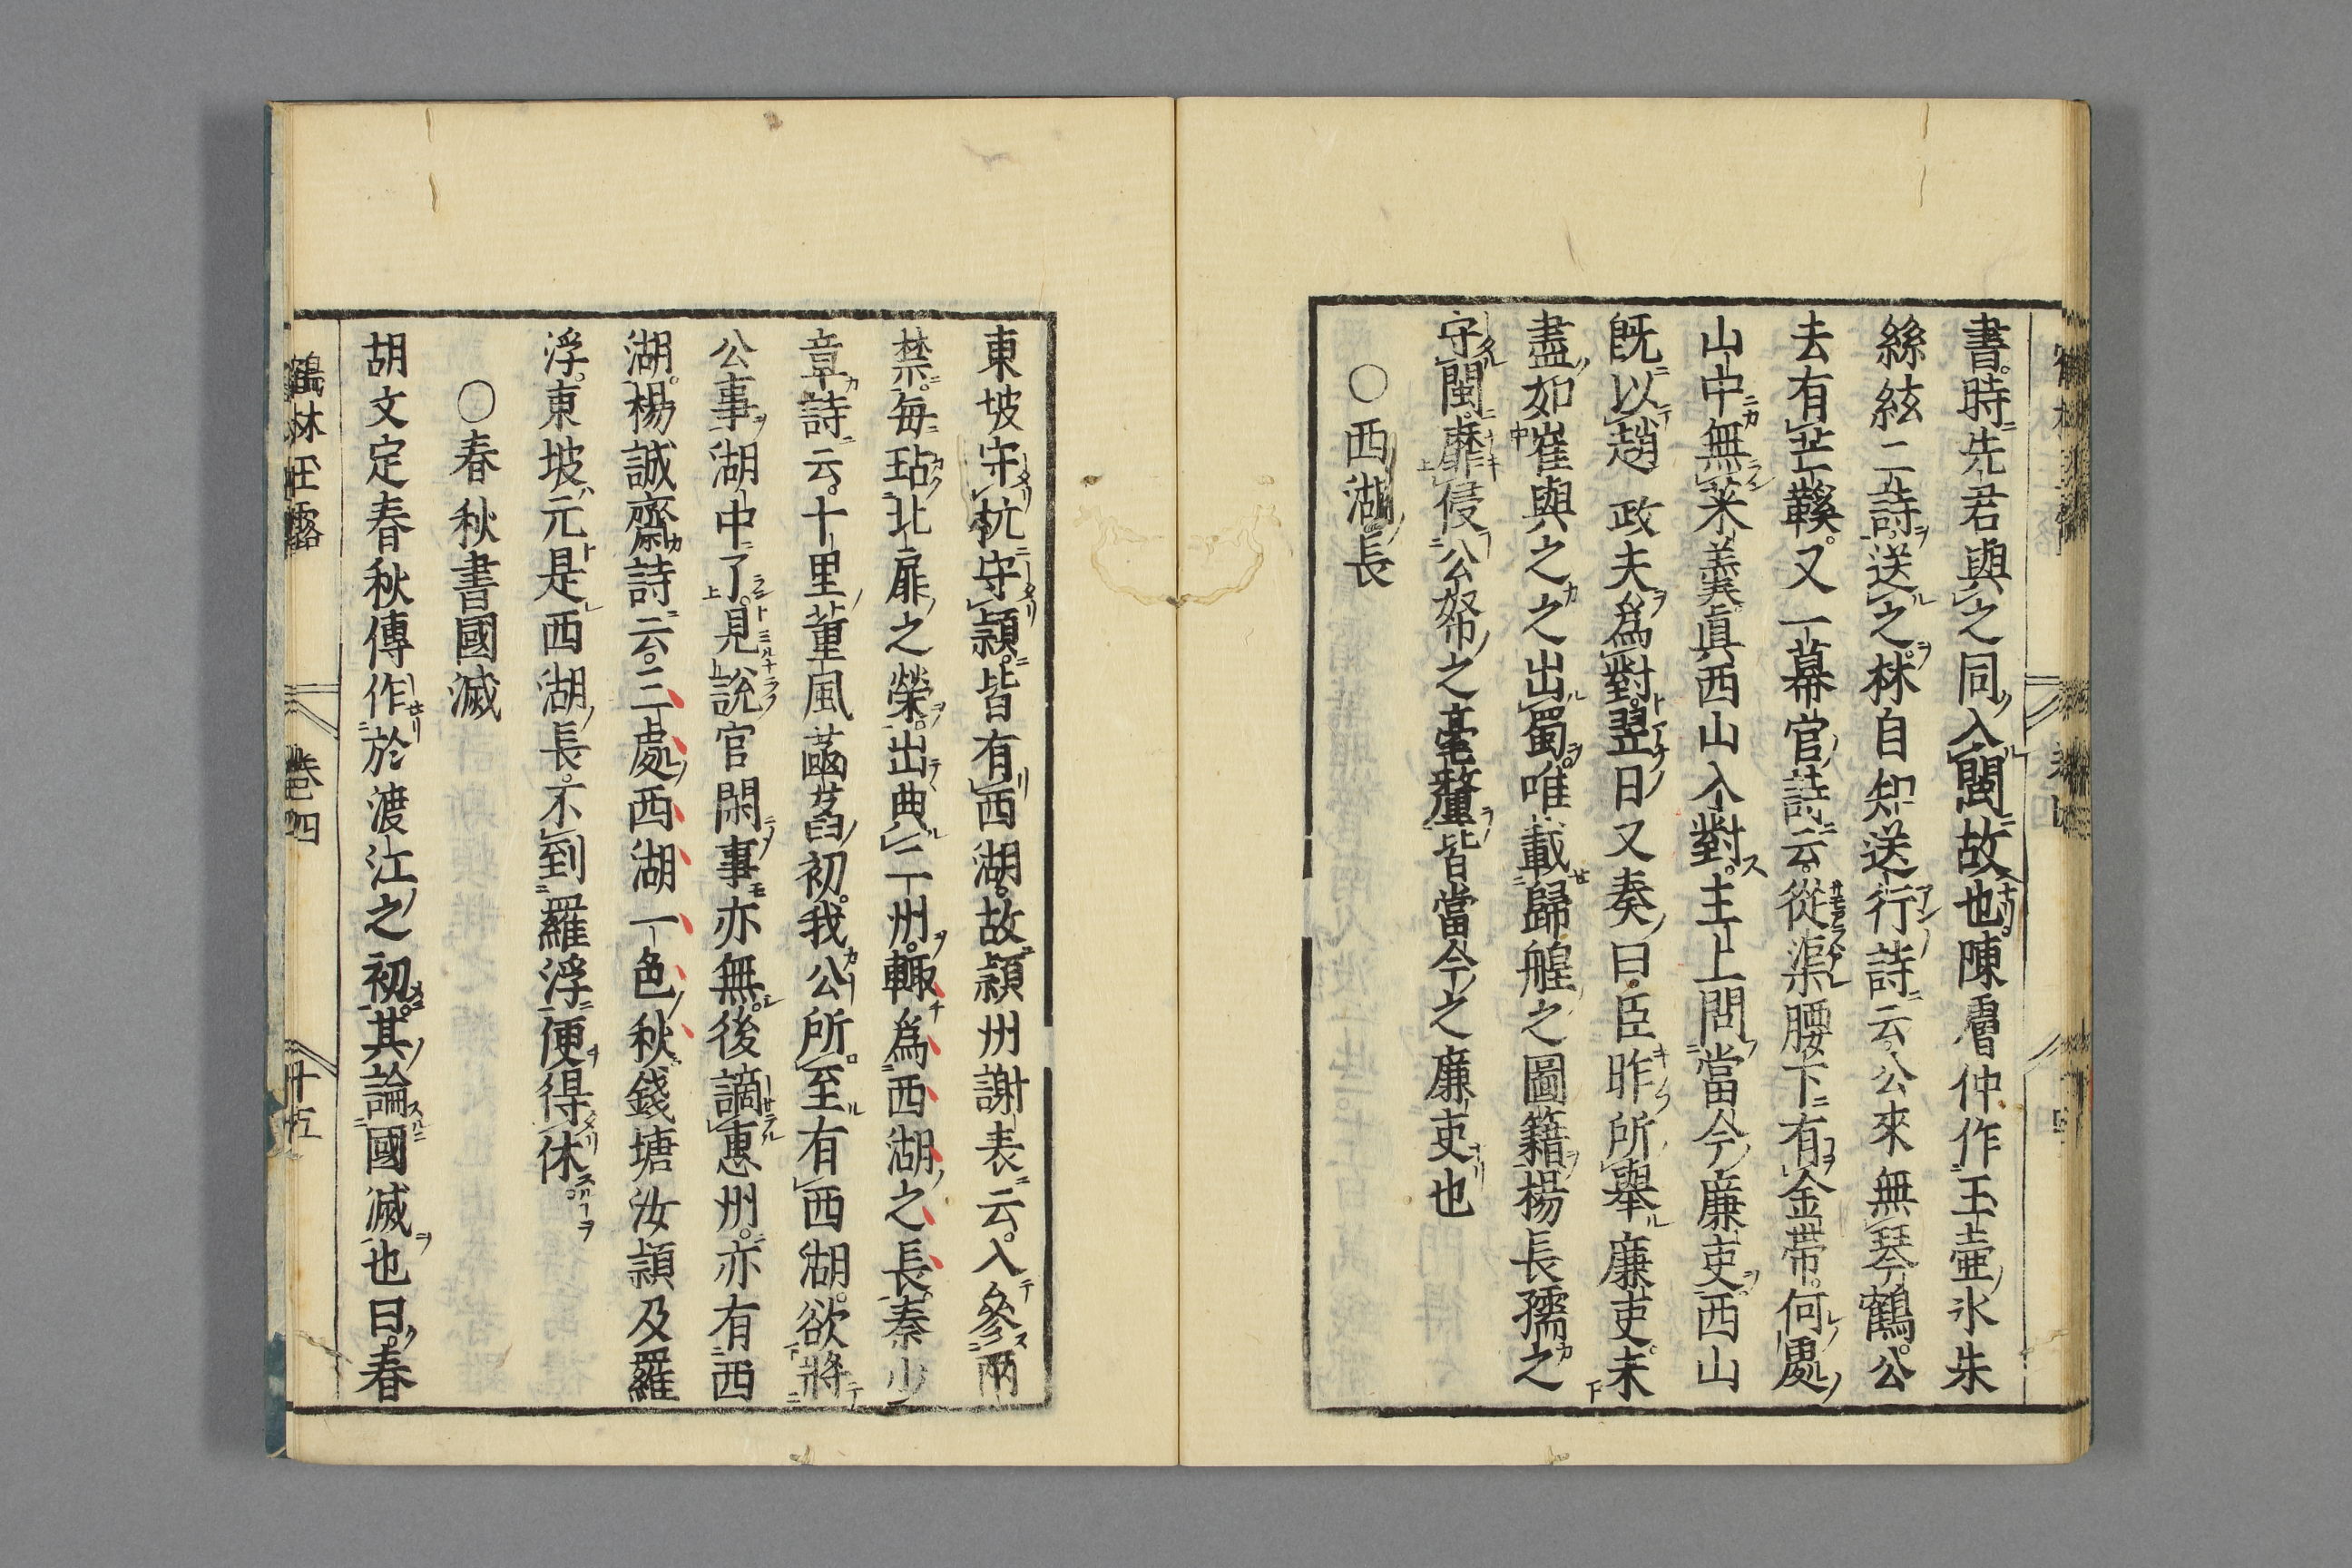 書時先君與之同入閩故也陳膚仲作玉壷氷朱
絲絃二詩送之林自知送行詩云公來無琴鶴公
去有芒鞵又一幕官詩云從渠腰下有金帶何處
山中無菜羹眞西山入對主上問當今廉吏西山
既以趙政夫爲對翌日又奏曰臣昨所舉廉吏未
盡如崔與之之出蜀唯載歸艎之圖籍楊長孺之
守閩靡侵公帑之毫釐皆當今之廉吏也
○西湖長
東坡守杭守潁皆有西湖故潁州謝表云入參兩
禁毎玷北扉之榮出典二州輙爲西湖之長秦少
章詩云十里薫風菡萏初我公所至有西湖欲將
公事湖中了見説官閑事亦無後謫惠州亦有西
湖楊誠齋詩云三處西湖一色秋錢塘汝潁及羅
浮東坡元是西湖長不到羅浮便得休
○春秋書國滅
胡文定春秋傳作於渡江之初其論國滅也曰春
鶴林玉露 巻四 十五